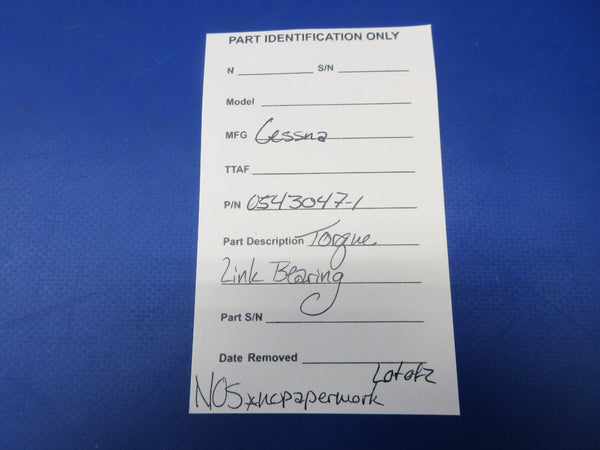 PART IDENTIFICATION ONLY
N S/N
Model
MFG Cessna
TTAF
P/N 0543047-1
Part Description Torque
Link Bearing
Part S/N
Date Removed
Lot of 2
NOS *no paperwork